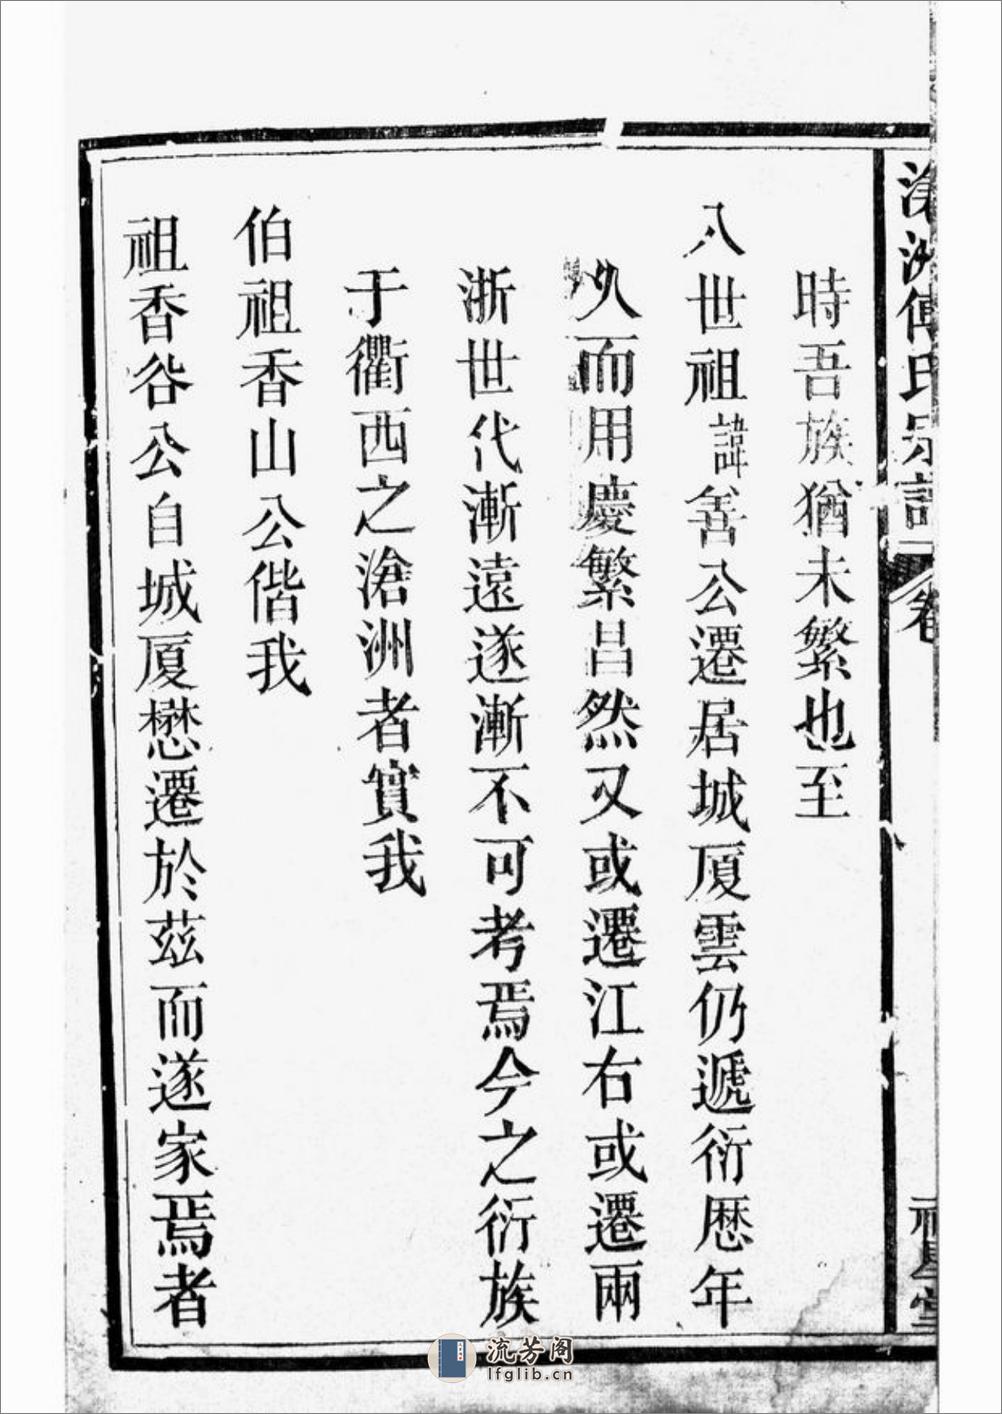 滄洲傅氏宗譜 卷
時吾族猶未繁也至
入世祖諱善公遷居城厦雲仍遞衍歷年
久而用慶繁昌然又或遷江右或遷兩
浙世代漸遠遂漸不可考焉今之衍族
于衢西之滄洲者實我
伯祖香山公偕我
祖香谷公自城厦懋遷於茲而遂家焉者
流芳阁
lfglib.cn